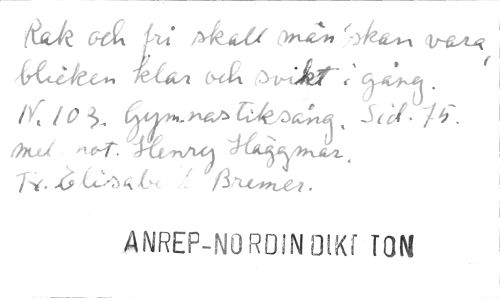 Rak och fri skall män'skan vara,
blicken klar och svikt i gång.
N. 103. Gymnastiksång. Sid. 75.
med not. Henry Häggmar.
Tr. Elisabeth Bremer.
ANREP-NORDIN DIKT TON